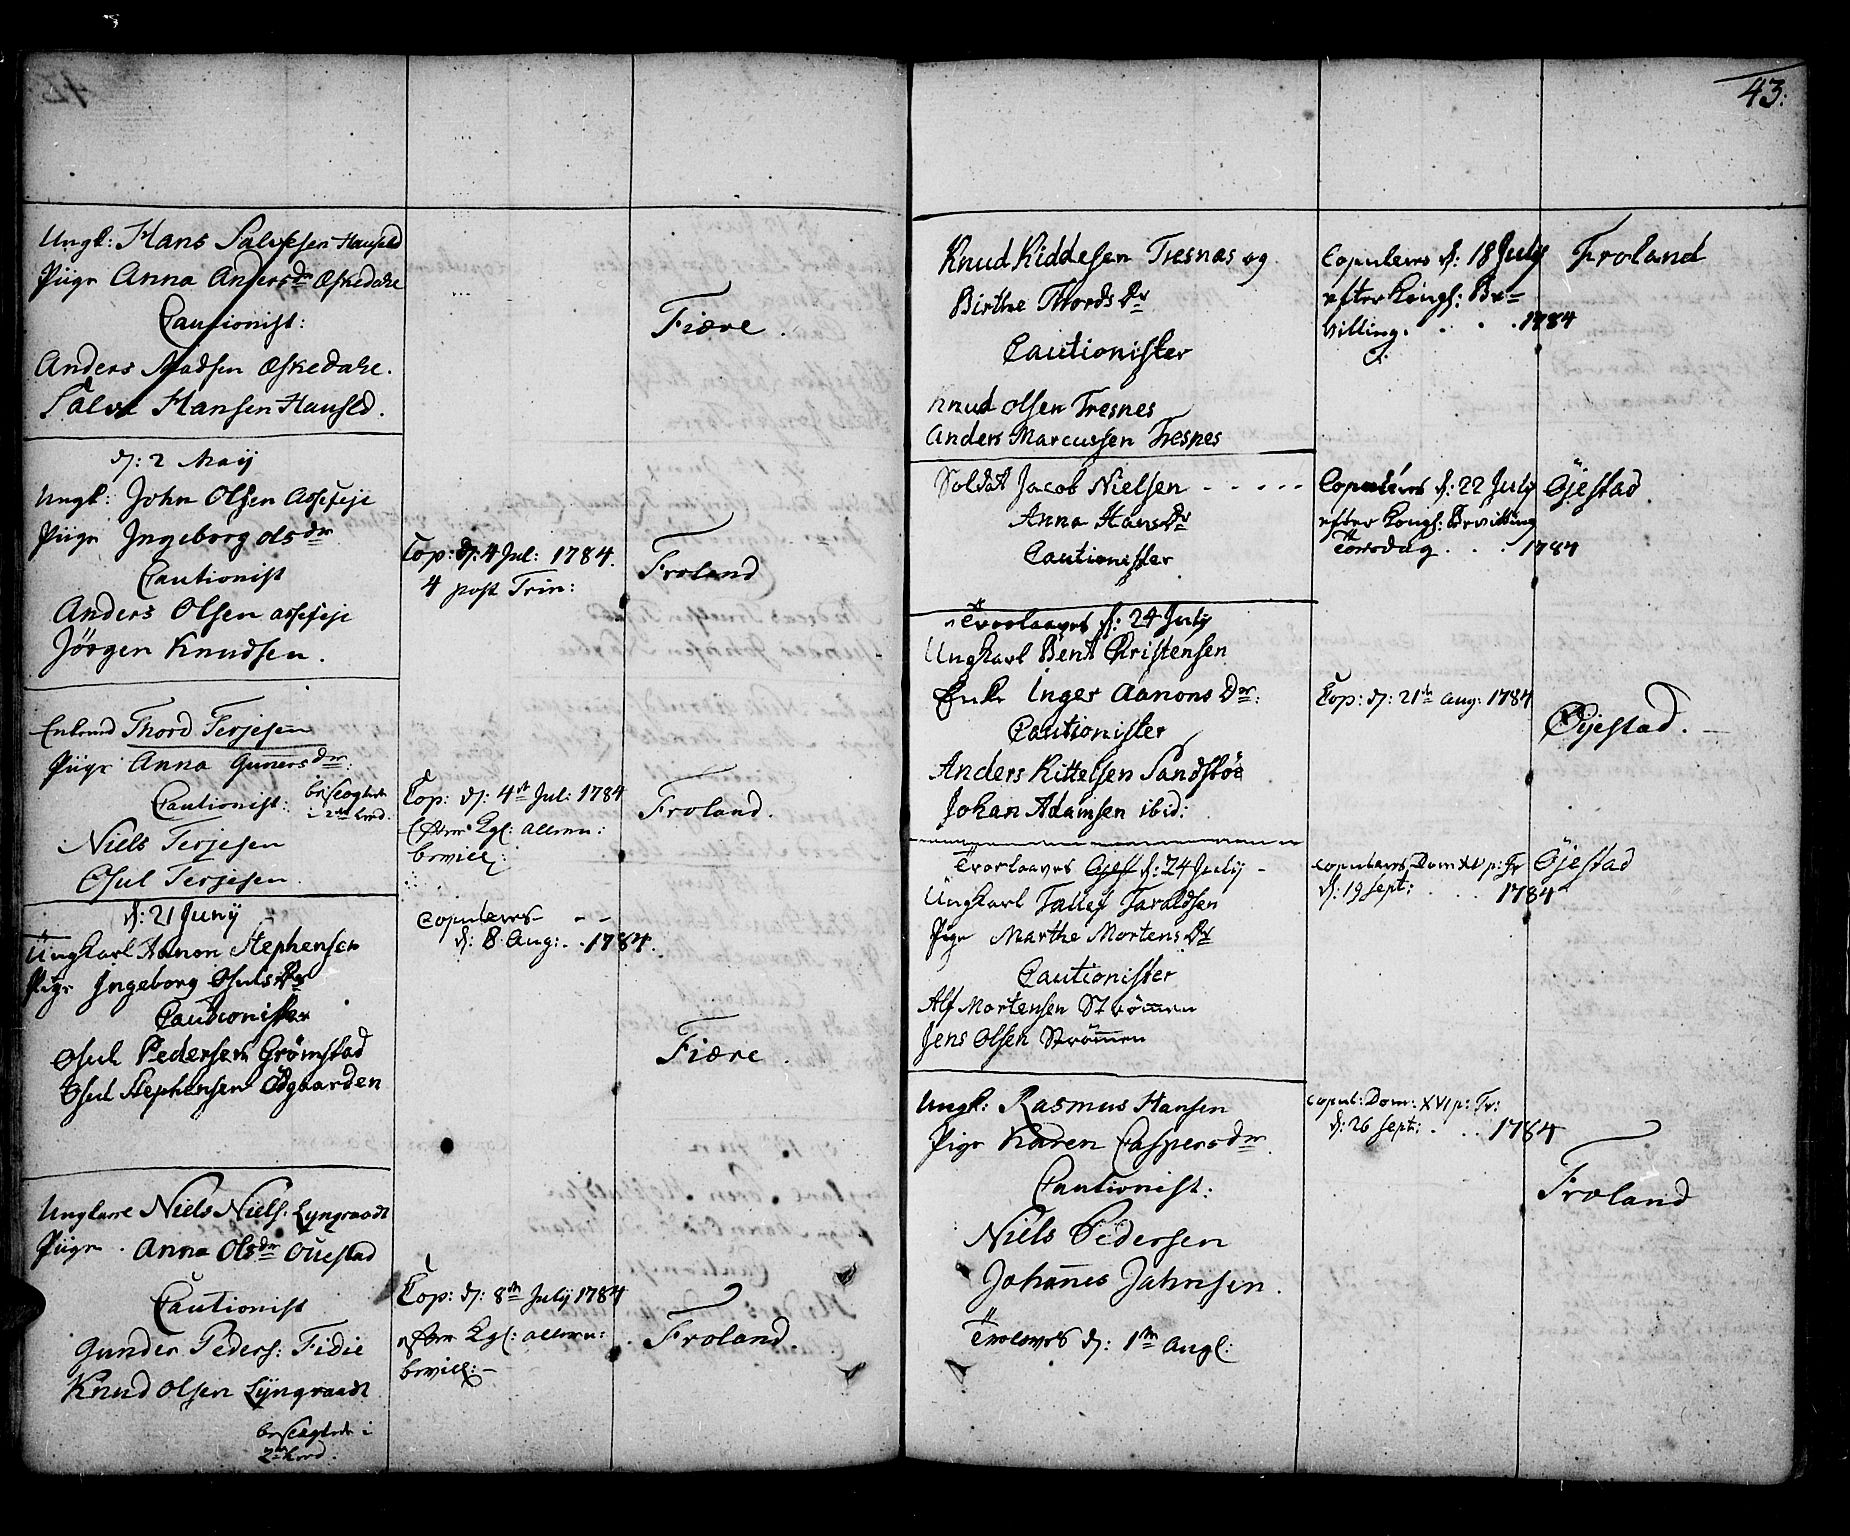 Ungk: Hans Salvesen Hauseld
Piige Anna Andersdr Æskedahl
Cautionist:
Anders Madsen Æskedahl.
Salve Hansen Hauseld.
Fiære.
d: 2 Maij
Ungk: John Olsen
Piige Ingeborg Olsdr
Cautionist
Anders Olsen
Jörgen Knudsen.
Cop: d: 4 Jul: 1784.
4 post Trin:
Froland
Enkemd Thord Terjesen
Piige Anna Gunersdr:
Cautionist: beslægtede
i 2det Leed.
Niels Terjesen
Osul Terjesen.
Cop: d: 4de Jul: 1784
efter Kgl: allern:
bevill:
Froland.
d: 21 Junij
Ungkarl Aanon Stephensen
Pige Ingeborg OsulsDr
Cautionister
Osul Pedersen Grömstad
Osul Stephensen Ödgaarden
Copuleres
d: 8 Aug: . . 1784.
Fiære.
Ungkarl Niels Niels. Lyngraadt
Piige . Anna Olsdr Ouestad
Cautionist
Gunder Peders: Fidie
Knud Olsen Lÿngraadt
beslægtede i
2det Leed.
Cop: d: 8de Julij 1784
efter Kgl: allern:
bevill:
Froland.
43.
Knud Kiddelsen Tresnes og
Birthe ThordsDr
Cautionister
Knud Olsen Tresnes
Anders Marcussen Tresnes
Copuleres d: 18 July
efter Kongl: Be-
villing. . . . 1784
Froland
Soldat Jacob Nielsen - - - - -
Anna HansDr
Cautionister
Copuleres d: 22 July
efter Kongl: Bevilling
Torsdag . . . 1784
Öjestad.
Trorlaaves d: 24 July
Ungkarl Bent Christensen
Enke Inger Aanons Dr:
Cautionister
Anders Kittelsen Sandstöe
Johan Adamsen ibid:
Cop: d: 21de Aug: 1784
Öijestad.
Trorlaaves d: 24 July -
Ungkarl Tallef Taraldsen
Pige Marthe MortensDr
Cautionister
Alf Mortensen Strömmen
Jens Olsen Strömmen
Copuleres Dom XV p: Tr
d: 19 Sept: . . 1784
Öjestad
Ungk: Rasmus Hansen
Pige Karen Caspersdr
Cautionist:
Niels Pedersen
Johannes Jahnsen.
Trolovet d: 1ste Aug:
Copul: Dom: XVI p: Tr:
d: 26 Sept: . . . 1784
Froland